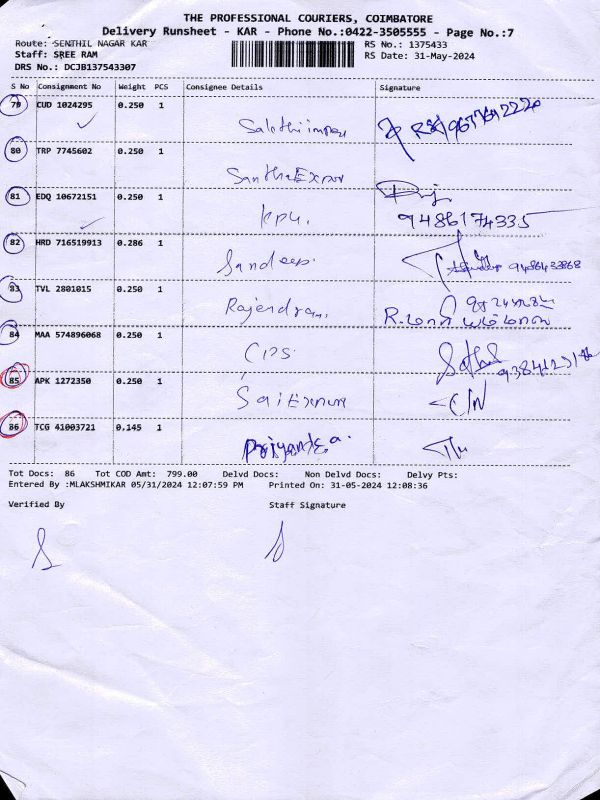 THE PROFESSIONAL COURIERS, COIMBATORE
Delivery Runsheet - KAR - Phone No.:0422-3505555 - Page No.:7
Route: SENTHIL NAGAR KAR RS No.: 1375433
Staff: SREE RAM RS Date: 31-May-2024
DRS No.: DCJB137543307
S No Consignment No Weight PCS Consignee Details Signature
79 CUD 1024295 0.250 1
80 TRP 7745602 0.250 1
81 EDQ 10672151 0.250 1
kpu. 9486174335
82 HRD 716519913 0.286 1
Sandeep. 9486433868
83 TVL 2801015 0.250 1
Rajendran,
84 MAA 574896068 0.250 1
85 APK 1272350 0.250 1
86 TCG 41003721 0.145 1
Tot Docs: 86 Tot COD Amt: 799.00 Delvd Docs: Non Delvd Docs: Delvy Pts:
Entered By :MLAKSHMIKAR 05/31/2024 12:07:59 PM Printed On: 31-05-2024 12:08:36
Verified By Staff Signature